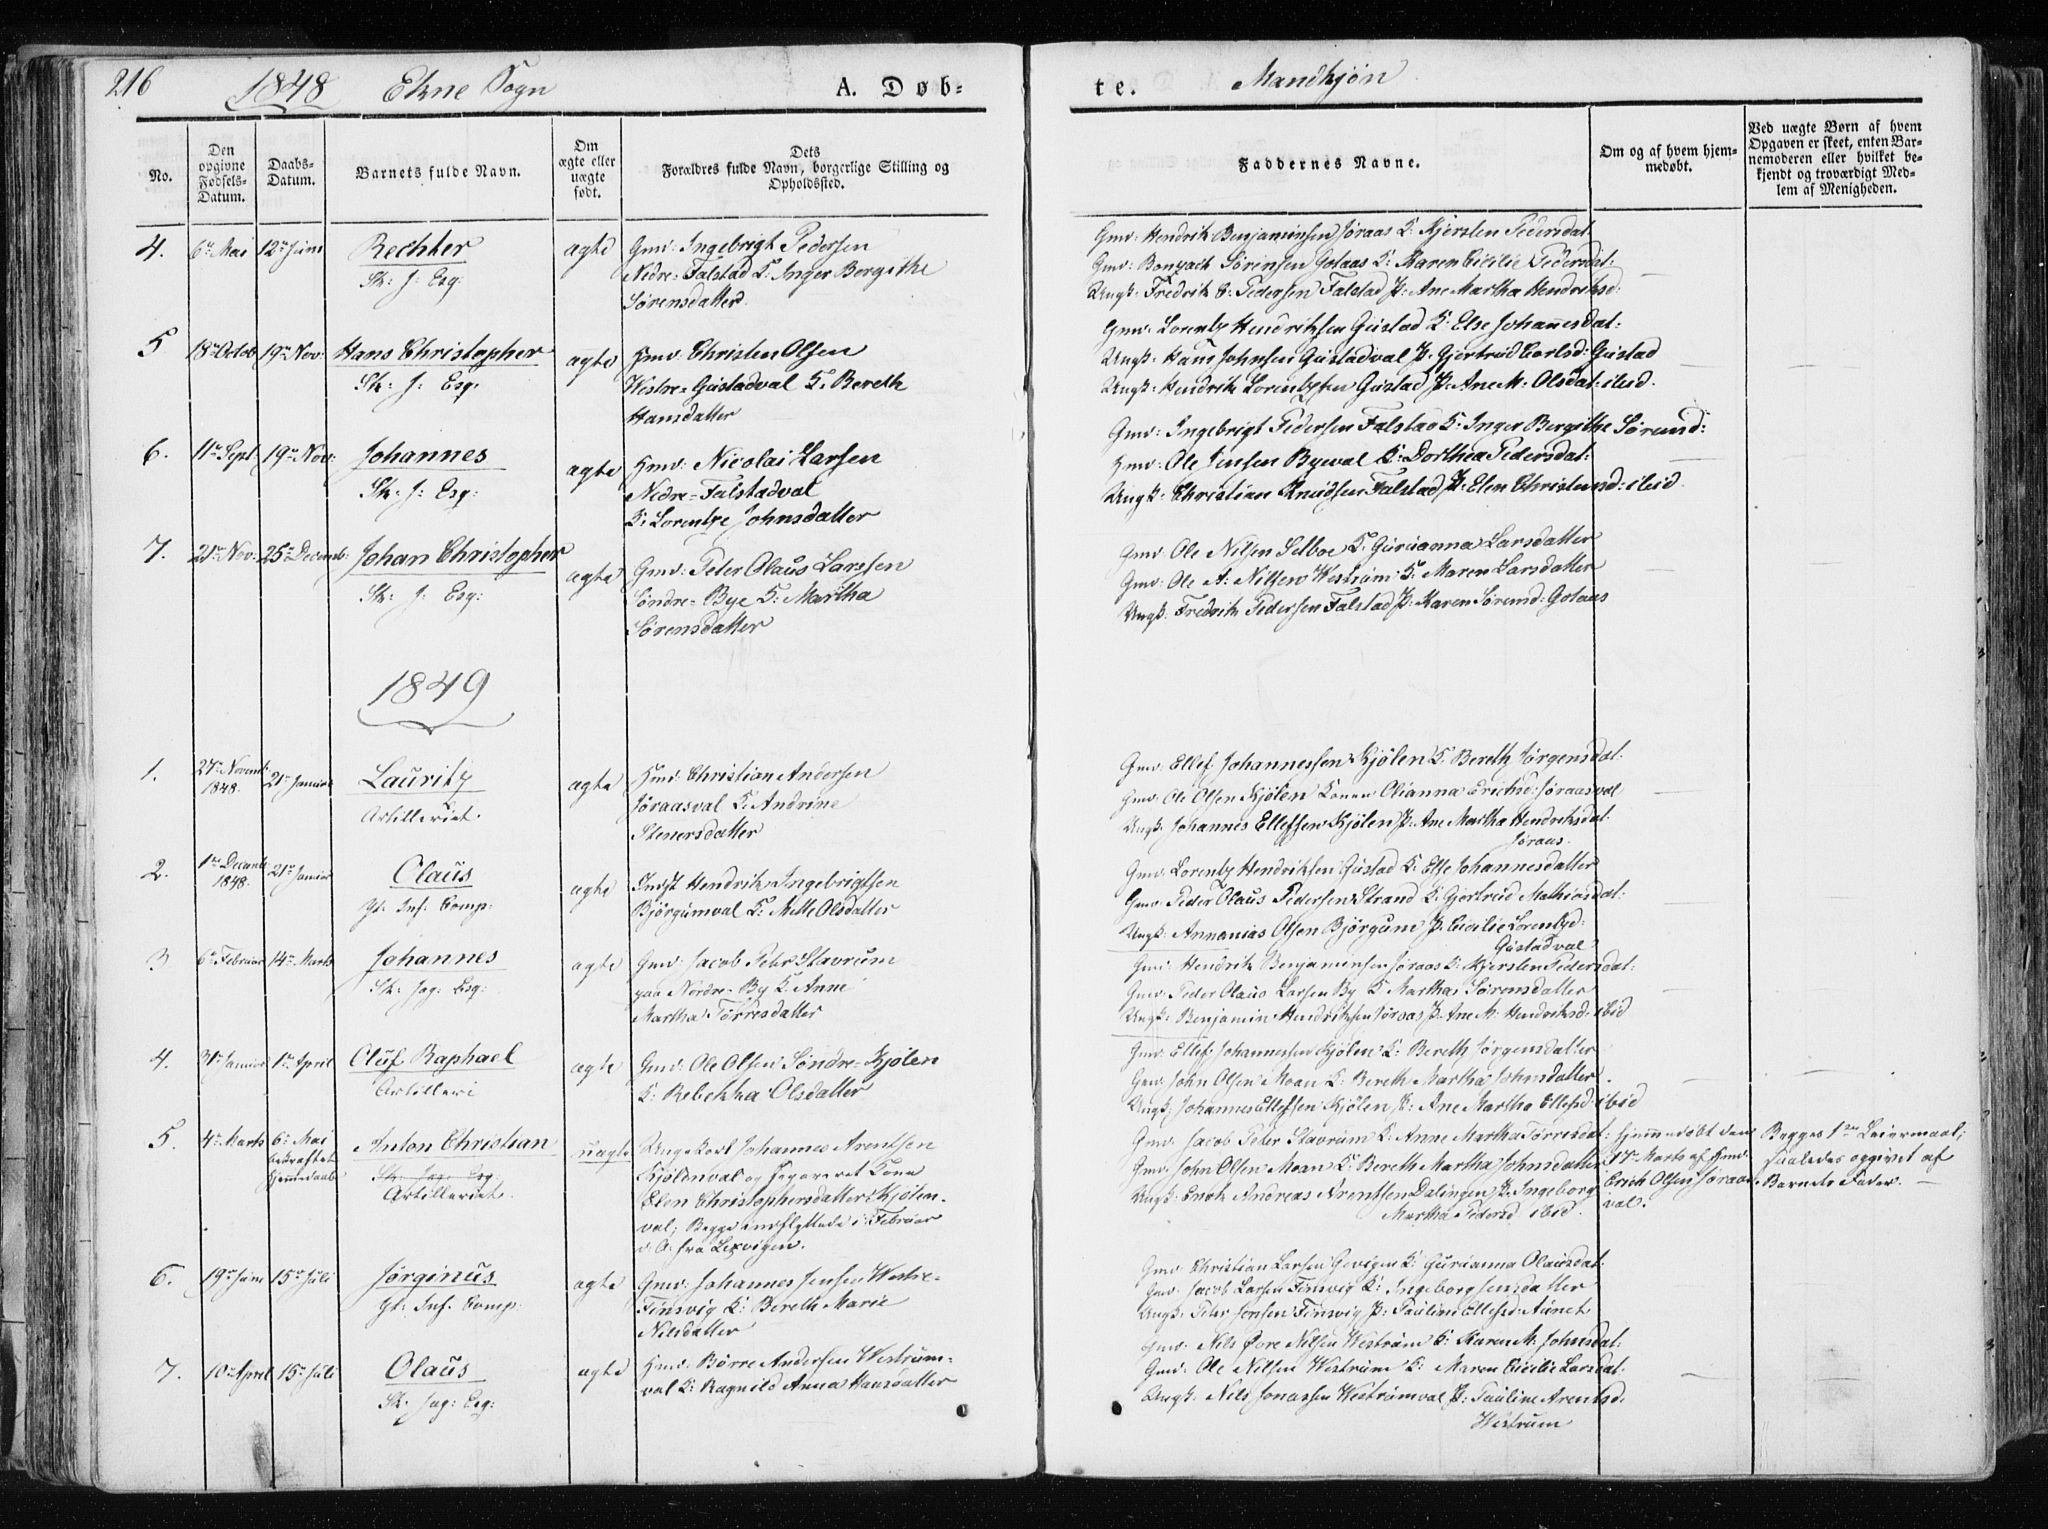 216
1848 Ekne Sogn
A. Døb-
te.
Mandkjøn
No.
Den opgivne Fødsels-Datum.
Daabs-Datum.
Barnets fulde Navn.
Om ægte eller uægte født.
Dets Forældres fulde Navn, borgerlige Stilling og Opholdssted.
Faddernes Navne.
Om og af hvem hjemmedøbt.
Ved uægte Børn af hvem Opgaven er skeet, enten Barnemoderen eller hvilket bekjendt og troværdigt Medlem af Menigheden.
4. 6te Mai 12te Juni Rechter ægte Gmd: Ingebrigt Pedersen
Sk: J: Esq: Nedre-Falstad K. Inger Bergithe
Sørensdatter.
Gmd: Hendrik Benjaminsen Joraas K: Kjersten Pedersdat:
Gmd: Bonsach Sørensen Golaas K: Karen Cicilie Pedersdt:
Ungk: Fredrik O: Pedersen Falstad P: Ane Martha Hendriksd:
5 18de Octob 19de Nov: Hans Christopher ægte Hmd: Christen Olsen
Sk: J: Esq: Westre-Gustadval K. Bereth
Hansdatter
Gmd: Lorentz Hendriksen Gustad K. Else Johannesdat:
Ungk: Hans Johnsen Gustadval P: Gjertrud Carlsd: Gustad
Ungk: Hendrik Lorentzsen Gustad P: Ane M: Olsdat: ibid.
6. 11te Sept 19de Nov: Johannes ægte Hmd: Nicolai Larsen
Sk: J: Esq: Nedre-Falstadval
K: Lorentze Johnsdatter
Gmd: Ingebrigt Pedersen Falstad K: Inger Bergithe Sørensd:
Hmd: Ole Jensen Byeval K: Dorthea Pedersdat:
Ungk: Christian Knudsen Falstad P: Elen Christensd: ibid.
7. 21de Nov: 25de Decemb: Johan Christopher ægte Gmd: Peter Olaus Larssen
Sk: J: Esq: Søndre-Bye K: Martha
Sørensdatter
Gmd: Ole Nilsen Selboe K. Gurianna Larsdatter
Gmd: Ole A: Nilsen Westrum K: Maren Larsdatter
Ungk. Fredrik Pedersen Falstad P: Karen Sørensd: Golaas
1849
1. 27de Novemb: 1848. 21de Januar Lauritz ægte Hmd: Christian Andersen
Artilleriet. Joraasval K. Andrine
Stenersdatter
Gmd: Ellef Johannessen Kjölen K. Bereth Jørgensdat:
Gmd: Ole Olsen Kjölen Konen Olianna Erichsd: Joraasval
Ungk: Johannes Ellefsen Kjölen P: Ane Martha Hendriksdat:
Joraas.
2. 1te Decemb: 1848. 21de Januar Olaus ægte Indst Hendrik Ingebrigtsen
Inf. Comp: Bjørgumval K: Mette Olsdatter
Gmd: Lorentz Hendriksen Gustad K: Else Johannesdatter
Gmd: Peder Olaus Pedersen Strand K. Gjertrud Mathiasdat:
Ungk: Annanias Olsen Bjørgum P: Cicilie Lorentzd:
Gustadval
3 6te Februar 14de Marts Johannes ægte Gmd: Jacob Petr Stavrum
Sk: Jag: Esq: paa Nordre-By K. Anne
Martha Torresdatter
Gmd: Hendrik Benjaminsen Joraas K: Kjersten Pedersdat:
Gmd: Peder Olaus Larsen By K Martha Sørensdatter
Ungk: Benjamin Hendriksen Joraas P: Ane M: Hendriksd: ibid
4. 31te Januar 1te April Oluf Raphael ægte Gmd: Ole Olsen Søndre-Kjölen
Artilleri K: Rebekka Olsdatter
Gmd: Ellef Johannessen Kjölen K: Bereth Jørgensdatter
Gmd: John Olsen Moan K: Bereth Martha Johnsdatter.
Ungk: Johannes Ellefsen Kjölen P: Ane Martha Ellefsd: ibid
5. 4de Marts 6te Mai bekræftet Hjemmedaab Anton Christian uægte Ungekarl Johannes Arentsen
Sk: Jag: Esq: Kjölenval og Kona
Artilleriet. Elen Christophersdatter Kjölen-
val; Begge indflyttede i Februar
d: A: fra Lexvigen.
Gmd: Jacob Peter Stavrum K: Anne Martha Torresdat:
Gmd: John Olsen Moan K: Bereth Martha Johnsdatter
Ungk: Enok Andreas Arentsen Dalingen P: Ingeborg
Martha Pedersd ibid.
Hjemmedøbt den 17de Marts af Hmd: Erich Olsen Joraas-val.
Begges 1te Leiermaal; saaledes opgivet af Barnets Fader.
6. 19de Juni 15de Juli Jørginus ægte Gmd: Johannes Jensen Westre-
Inf. Comp: Finsvig K: Bereth Marie
Nilsdatter
Gmd: Christian Larsen Gevigen K: Gurianna Olausdat:
Gmd: Jacob Larsen Finsvig K: Ingeborg Jensdatter
Ungk: Peter Jensen Finsvig P: Pauline Ellefsd Aunet
7. 10de April 15de Juli Olaus ægte Hmd: Börre Andersen Westrum-
Sk. Jag: Esq: val K: Ragnild Anna Hansdatter
Gmd: Nils Øvre Nilsen Westrum K: Karen M: Johnsdat:
Gmd: Ole Nilsen Westrum K: Maren Cicilie Larsdat.
Ungk: Nils Jonassen Westrumval P: Pauline Arentsd:
Westrum